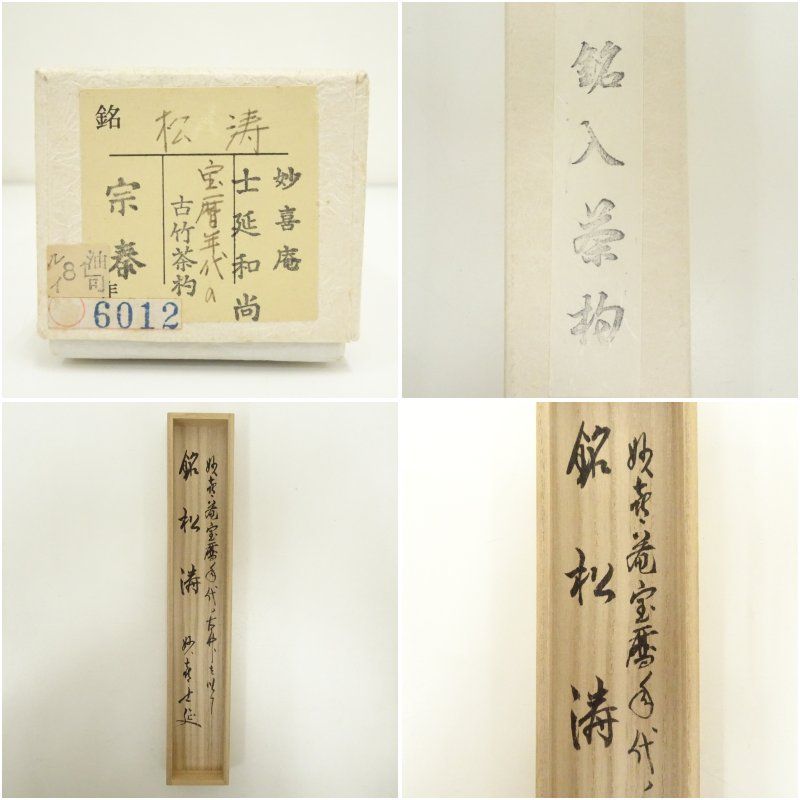 銘 松涛
妙喜庵
士延和尚
宝暦年代の
古竹茶杓
宗泰
油司
ルイ
8
作
6012
銘入茶杓
妙喜庵宝暦年代ノ古竹ヲ以テ
銘 松涛
妙喜士延
妙喜庵宝暦年代ノ
銘松涛